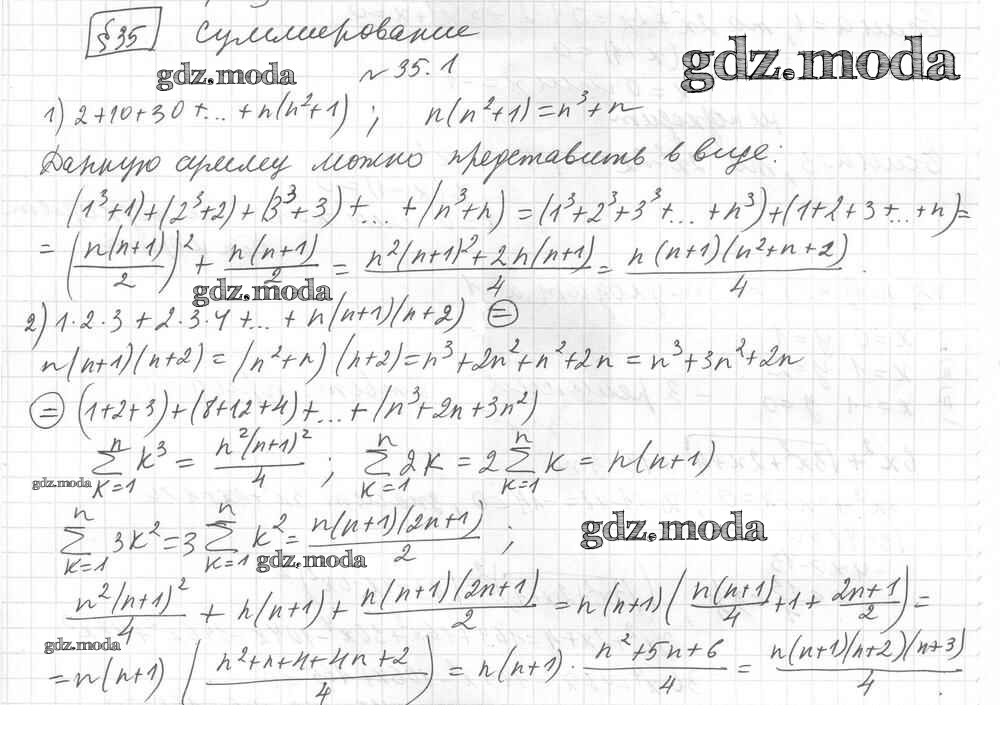 §35 Суммирование
gdz.moda
gdz.moda
№ 35.1
1) 2+10+30+...+n(n²+1) ; n(n²+1)=n³+n
Данную сумму можно представить в виде:
(1³+1)+(2³+2)+(3³+3)+...+(n³+n)=(1³+2³+3³+...+n³)+(1+2+3+...+n)=
= (n(n+1)/2)² + n(n+1)/2 = (n²(n+1)²+2n(n+1))/4 = n(n+1)(n²+n+2)/4 .
gdz.moda
2) 1·2·3+2·3·4+...+n(n+1)(n+2) ⊜
n(n+1)(n+2)=(n²+n)(n+2)=n³+2n²+n²+2n=n³+3n²+2n
⊜ (1+2+3)+(8+12+4)+...+(n³+2n+3n²)
∑ₖ₌₁ⁿ k³ = n²(n+1)²/4 ; ∑ₖ₌₁ⁿ 2k = 2∑ₖ₌₁ⁿ k = n(n+1)
gdz.moda
∑ₖ₌₁ⁿ 3k²=3∑ₖ₌₁ⁿ k²= n(n+1)(2n+1)/2 ;
gdz.moda
gdz.moda
n²(n+1)²/4 + n(n+1)+ n(n+1)(2n+1)/2 =n(n+1)(n(n+1)/4+1+(2n+1)/2)=
gdz.moda
=n(n+1)((n²+n+4+4n+2)/4) = n(n+1)·(n²+5n+6)/4 = n(n+1)(n+2)(n+3)/4 .